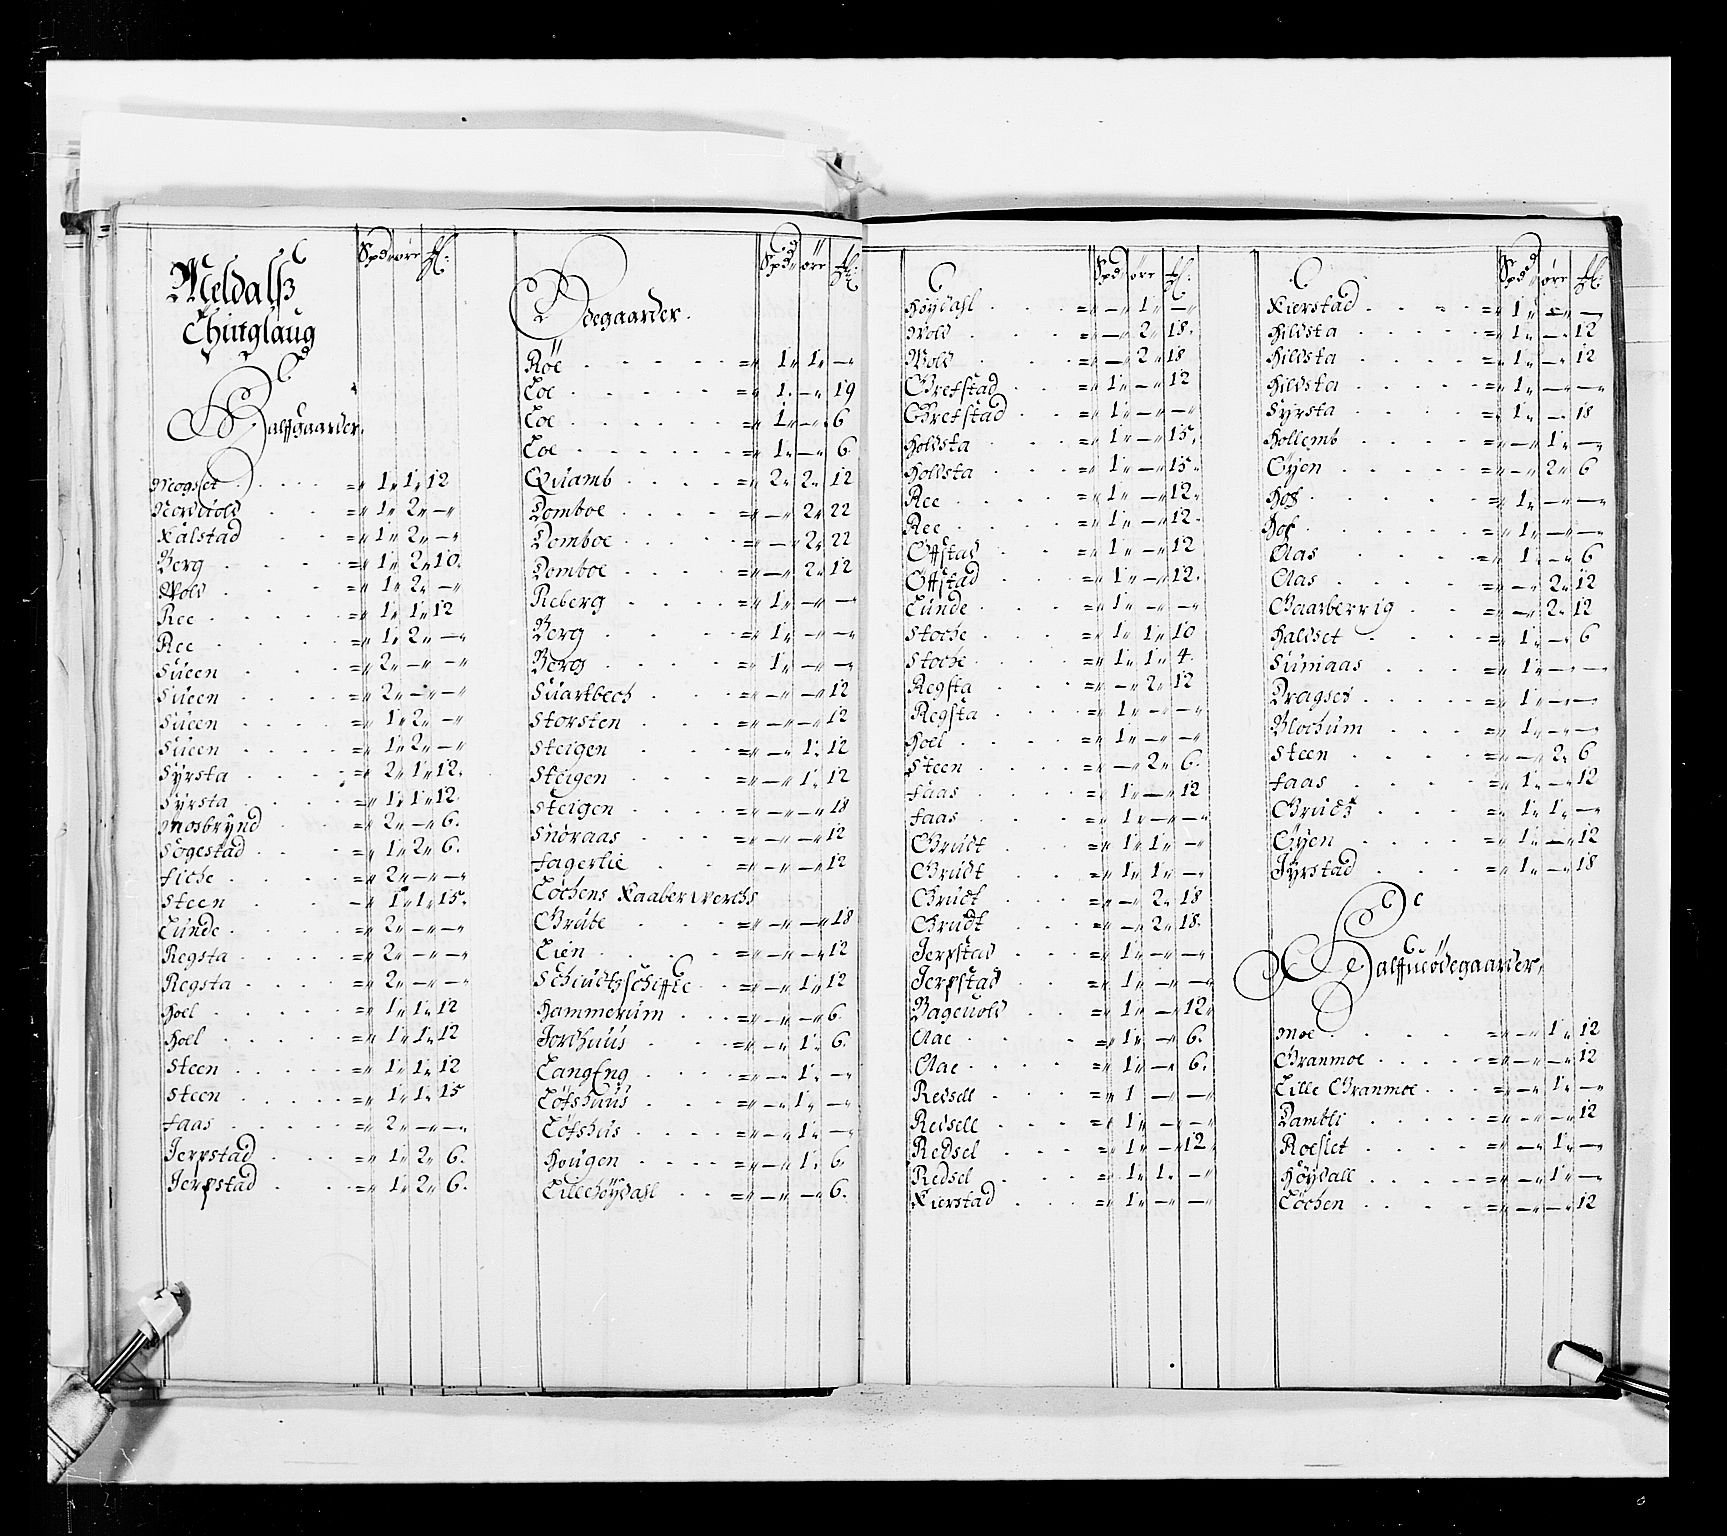 Spd øre
Meldalß
Thinglaug
Halffgaarder.
Mogset = 1 1 12
Nordvold = 1 2 —
Kalstad = 1 2 —
Berg = 1 2 10
Wold = 1 2 —
Ree = 1 1 12
Ree = 1 2 —
Süeen = 2 — —
Süeen = 2 — —
Süeen = 1 2 —
Süeen = 1 2 —
Syrsta = 2 1 12
Syrsta = 1 1 12
Mosbrynd = 2 — 6
Sogestad = 1 2 6
Fiche = 2 — —
Steen = 1 1 15
Lunde = 2 — —
Regsta = 2 — —
Regsta = 2 — —
Hoel = 1 1 12
Hoel = 1 1 12
Steen = 1 1 12
Steen = 1 1 15
Faas = 2 — —
Jerpstad = 1 2 6
Jerpstad = 1 2 6
Spd øre
Ødegaarder.
Røe = 1 1 —
Loe = 1 — 19
Loe = 1 — 6
Loe = 1 — 6
Quamb = 2 2 12
Domboe = — 2 22
Domboe = — 2 22
Domboe = — 2 12
Reberg = 1 — —
Berg = 1 — —
Berg = 1 — —
Suartbech = — — 12
Storsten = — — 12
Steigen = — 1 12
Steigen = — 1 12
Steigen = — — 18
Snøraas = — — 12
Fagerlie = — — 12
Løchens Kaaberwerchs
Grube = — — 18
Lien = — — 12
Schiudtzschiffte = — 1 12
Hammerum = — — 6
Jordhuus = — 1 6
Langeng = — 1 —
Løfshuus = — 1 —
Løfshus = — 1 —
Hougen = — 1 6
Lillehøydahl = — — 6
Spd øre
Høydahl = — 1 —
Wold = — 2 18
Wold = — 2 18
Grefstad = 1 — 12
Grefstad = 1 — —
Holdsta = 1 — 15
Holdsta = 1 — 15
Ree = 1 — 12
Ree = 1 — 12
Offstad = 1 — 12
Offstad = 1 — 12
Lunde = 1 — —
Stoche = 1 1 10
Stoche = 1 1 4
Regsta = — 2 12
Regsta = 1 — —
Hoel = 1 — —
Steen = — 2 6
Faas = 1 — 12
Faas = 1 — —
Grudt = 1 1 —
Grudt = 1 1 —
Grudt = — 2 18
Grudt = — 2 18
Jerpstad = 1 — —
Jerpstad = 1 — —
Bageuold = 1 — 12
Aae = 1 — 6
Aae = 1 — 6
Redsell = 1 — —
Redsell = 1 — —
Redsel = 1 — 12
Redsel = 1 1 —
Kierstad = 1 — —
Spd øre
Kierstad = 1 — —
Hildsta = 1 — 12
Hildsta = 1 — 12
Hildsta = 1 — —
Syrsta = 1 — 18
Hollemb = — 1 —
Øyen = — 2 6
Hof = 1 — —
Hof = 1 — —
Aas = 1 — 6
Aas = — 2 12
Gaarberrig = — 2 12
Haldset = 1 — 6
Sumaas = 1 — —
Dragset = 1 — —
Blochum = 1 — —
Steen = — 2 6
Faas = 1 — 12
Grudt = 1 1 —
Øyen = 1 — 12
Jyrstad = 1 — 18
Halffueødegaarder.
Moe = — 1 12
Granmoe = — — 12
Lille Granmoe = — 1 —
Dambli = — — 12
Roeslet = — 1 —
Høydall = — 1 —
Løchen = — — 12